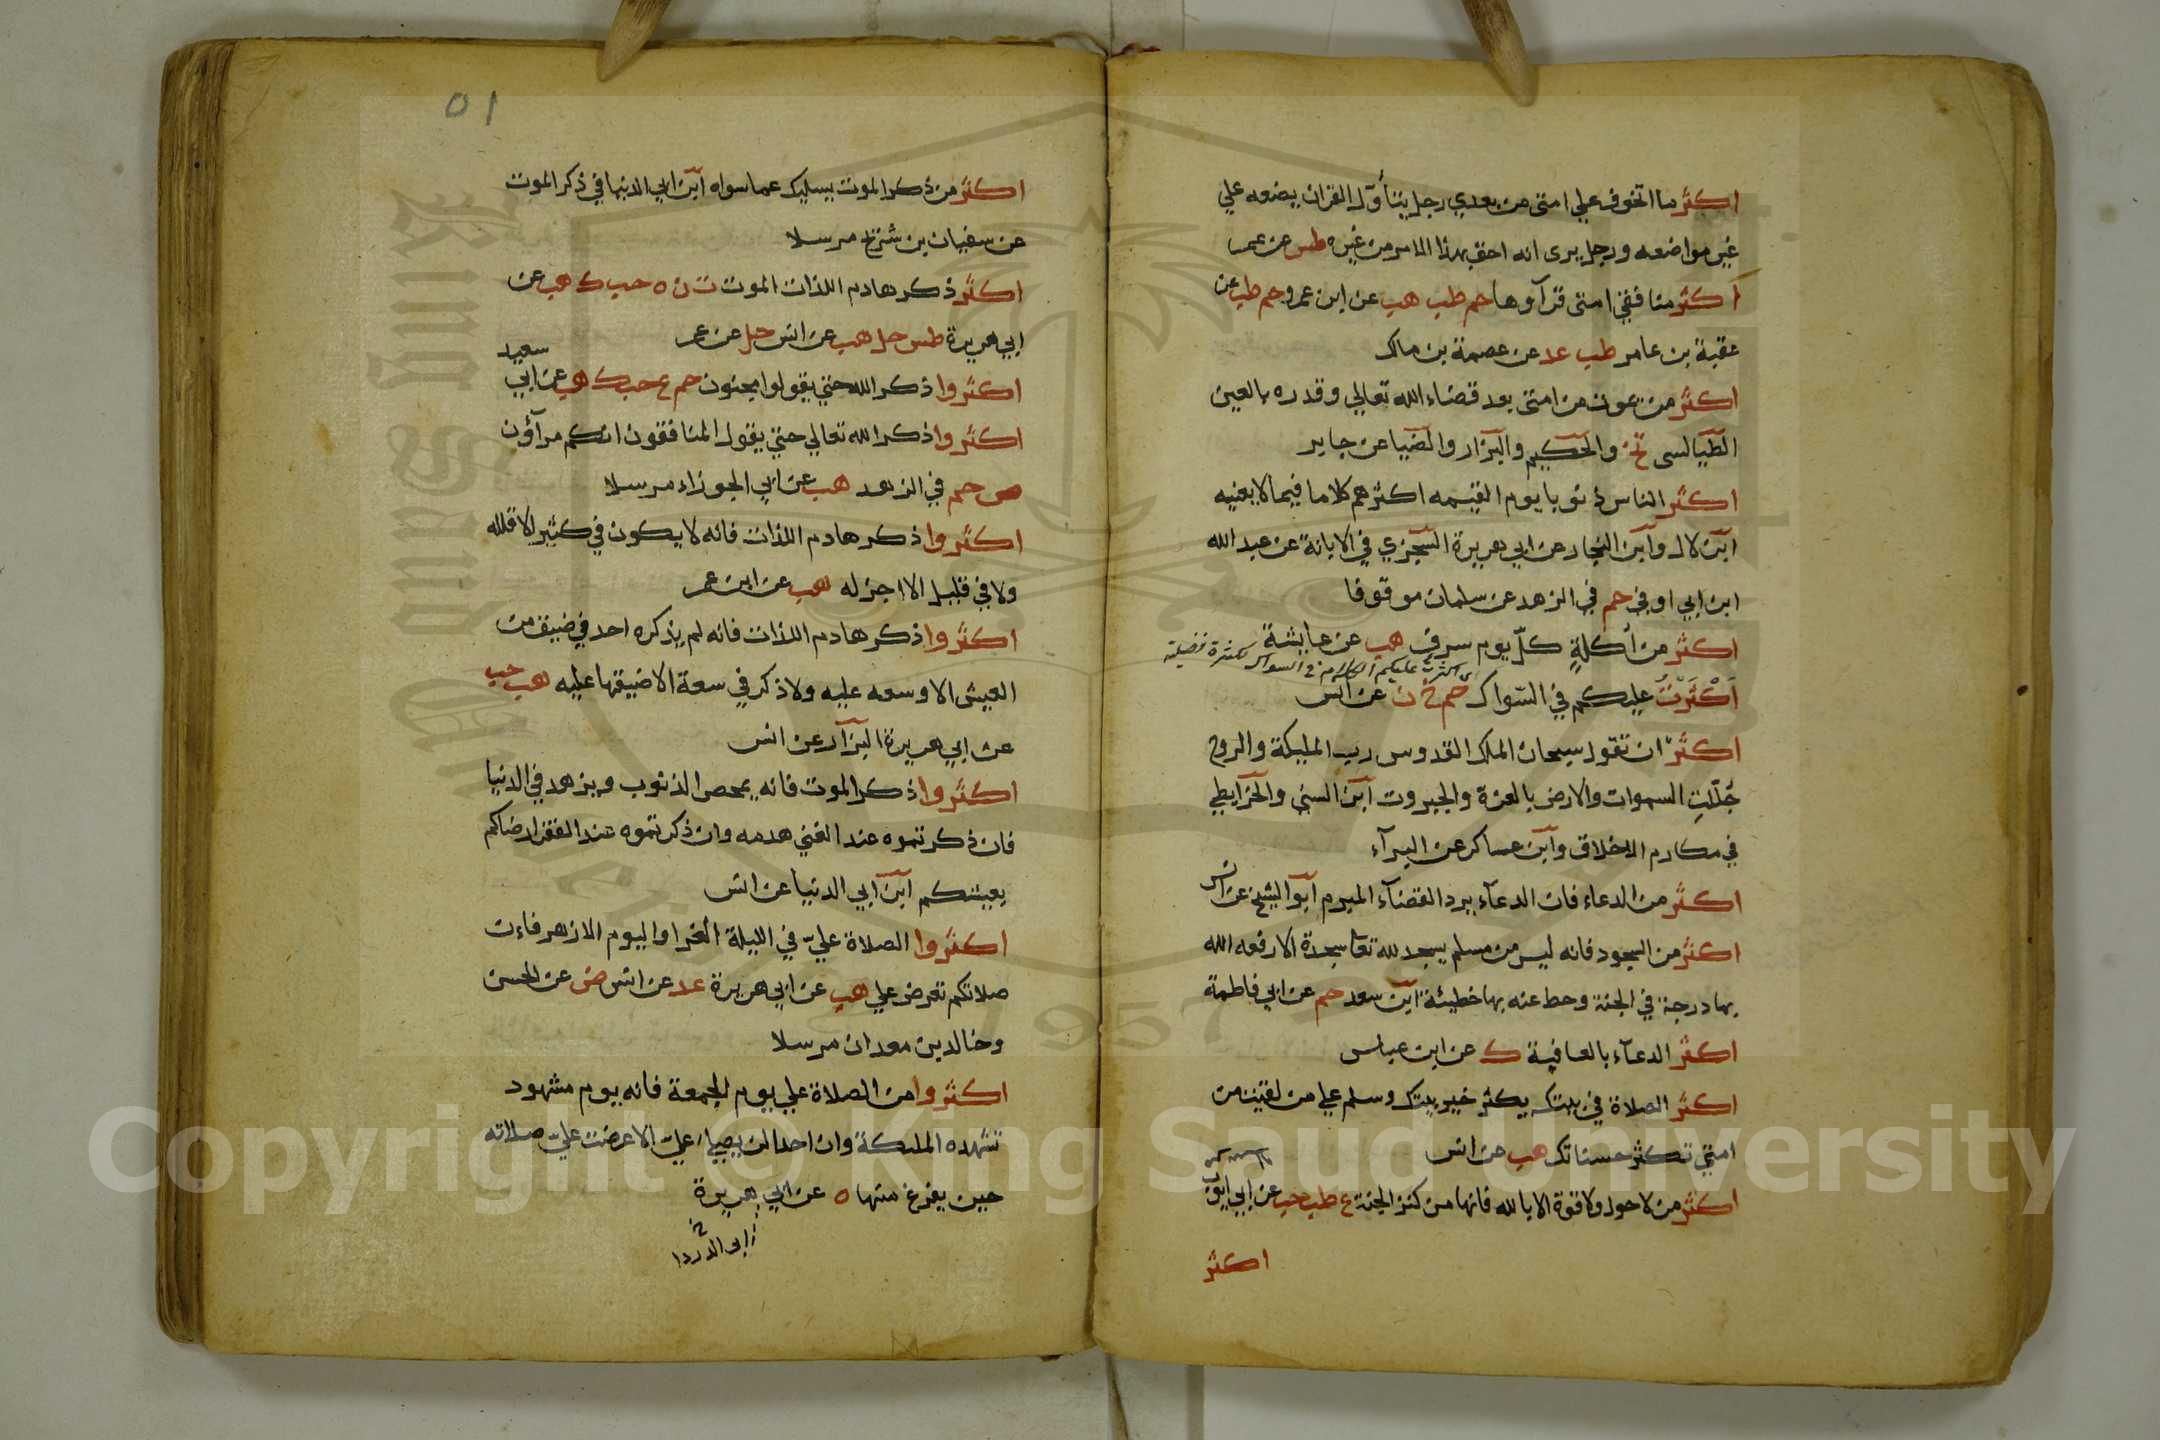 اكثر ما اتخوف علي امتى من بعدي رجل يتأول القران يضعه علي
غير مواضعه ورجل يرى انه احق بهذا الامر من غيره طس عن عمر
اكثر منافقي امتى قرآوها حم طب هب عن ابن عمرو حم طب عن
عقبة بن عامر طب عد عن عصمة بن مالك
اكثر من يموت من امتى بعد قضاء الله تعالي وقدره بالعين
الطيالسى تخ والحكيم والبزار والضيا عن جابر
اكثر الناس ذنوبا يوم القيمه اكثرهم كلاما فيما لا يعنيه
ابن لال وابن النجار عن ابي هريرة السجزي في الابانة عن عبد الله
ابن ابي اوفي حم في الزهد عن سلمان موقوفا
اكثر من أكلة كل يوم سرف هب عن عايشة
اى اكثرت عليكم الكلام في السواك لكثرة فضيلته
أكْثَرْتُ عليكم في السّواك حم خ ن عن انس
اكثر ان تقول سبحان الملك القدوس رب المليكة والروح
جُلّلتِ السموات والارض بالعزة والجبروت ابن السني والخرايطي
في مكارم الاخلاق وابن عساكر عن البرآء
اكثر من الدعاء فان الدعآء يرد القضآء المبرم ابو الشيخ عن انس
اكثر من السجود فانه ليس من مسلم يسجد لله تعا سجدة الا رفعه الله
بها درجة في الجنة وحط عنه بها خطيئة ابن سعد حم عن ابي فاطمة
اكثر الدعآء بالعافية ك عن ابن عباس
اكثر الصلاة في بيتك يكثر خير بيتك وسلم علي من لقيت من
امتي تكثر حسناتك هب عن انس
اكثر من لا حول ولا قوة الا بالله فانها من كنز الجنة ع طب حب عن ابي ايوب
اكثر
٥١
اكثر من ذكر الموت يسليك عما سواه ابن ابي الدنيا في ذكر الموت
عن سفيان بن شريح مرسلا
اكثر ذكر هادم اللذات الموت ت ن ه حب ك هب عن
ابي هريرة طس حل هب عن انس حل عن عمر
سعيد
اكثروا ذكر الله حتي يقولوا مجنون حم ع حب ك هب عن ابي
اكثروا ذكر الله تعالي حتي يقول المنافقون انكم مرآؤن
ص حم في الزهد هب عن ابي الجوزاء مرسلا
اكثروا ذكر هادم اللذات فانه لا يكون في كثير الا قلله
ولا في قليل الا اجزله هب عن ابن عمر
اكثروا ذكر هادم اللذات فانه لم يذكره احد في ضيق من
العيش الا وسعه عليه ولا ذكر في سعة الا ضيقها عليه هب حب
عن ابي هريرة البزآر عن انس
اكثروا ذكر الموت فانه يمحص الذنوب ويزهد في الدنيا
فان ذكرتموه عند الغني هدمه وان ذكرتموه عند الفقر ارضاكم
بعيشكم ابن ابي الدنيا عن انس
اكثروا الصلاة عليّ في الليلة الغرا واليوم الازهر فان
صلاتكم تعرض علي هب عن ابي هريرة عد عن انس ض عن الحسن
وخالد بن معدان مرسلا
اكثروا من الصلاة علي يوم الجمعة فانه يوم مشهود
تشهده المليكة وان احدا لن يصلي عليّ الا عرضت عليّ صلاته
حين يفرغ منها ه عن ابي هريرة
ابى الدردا
Copyright © King Saud University
1957